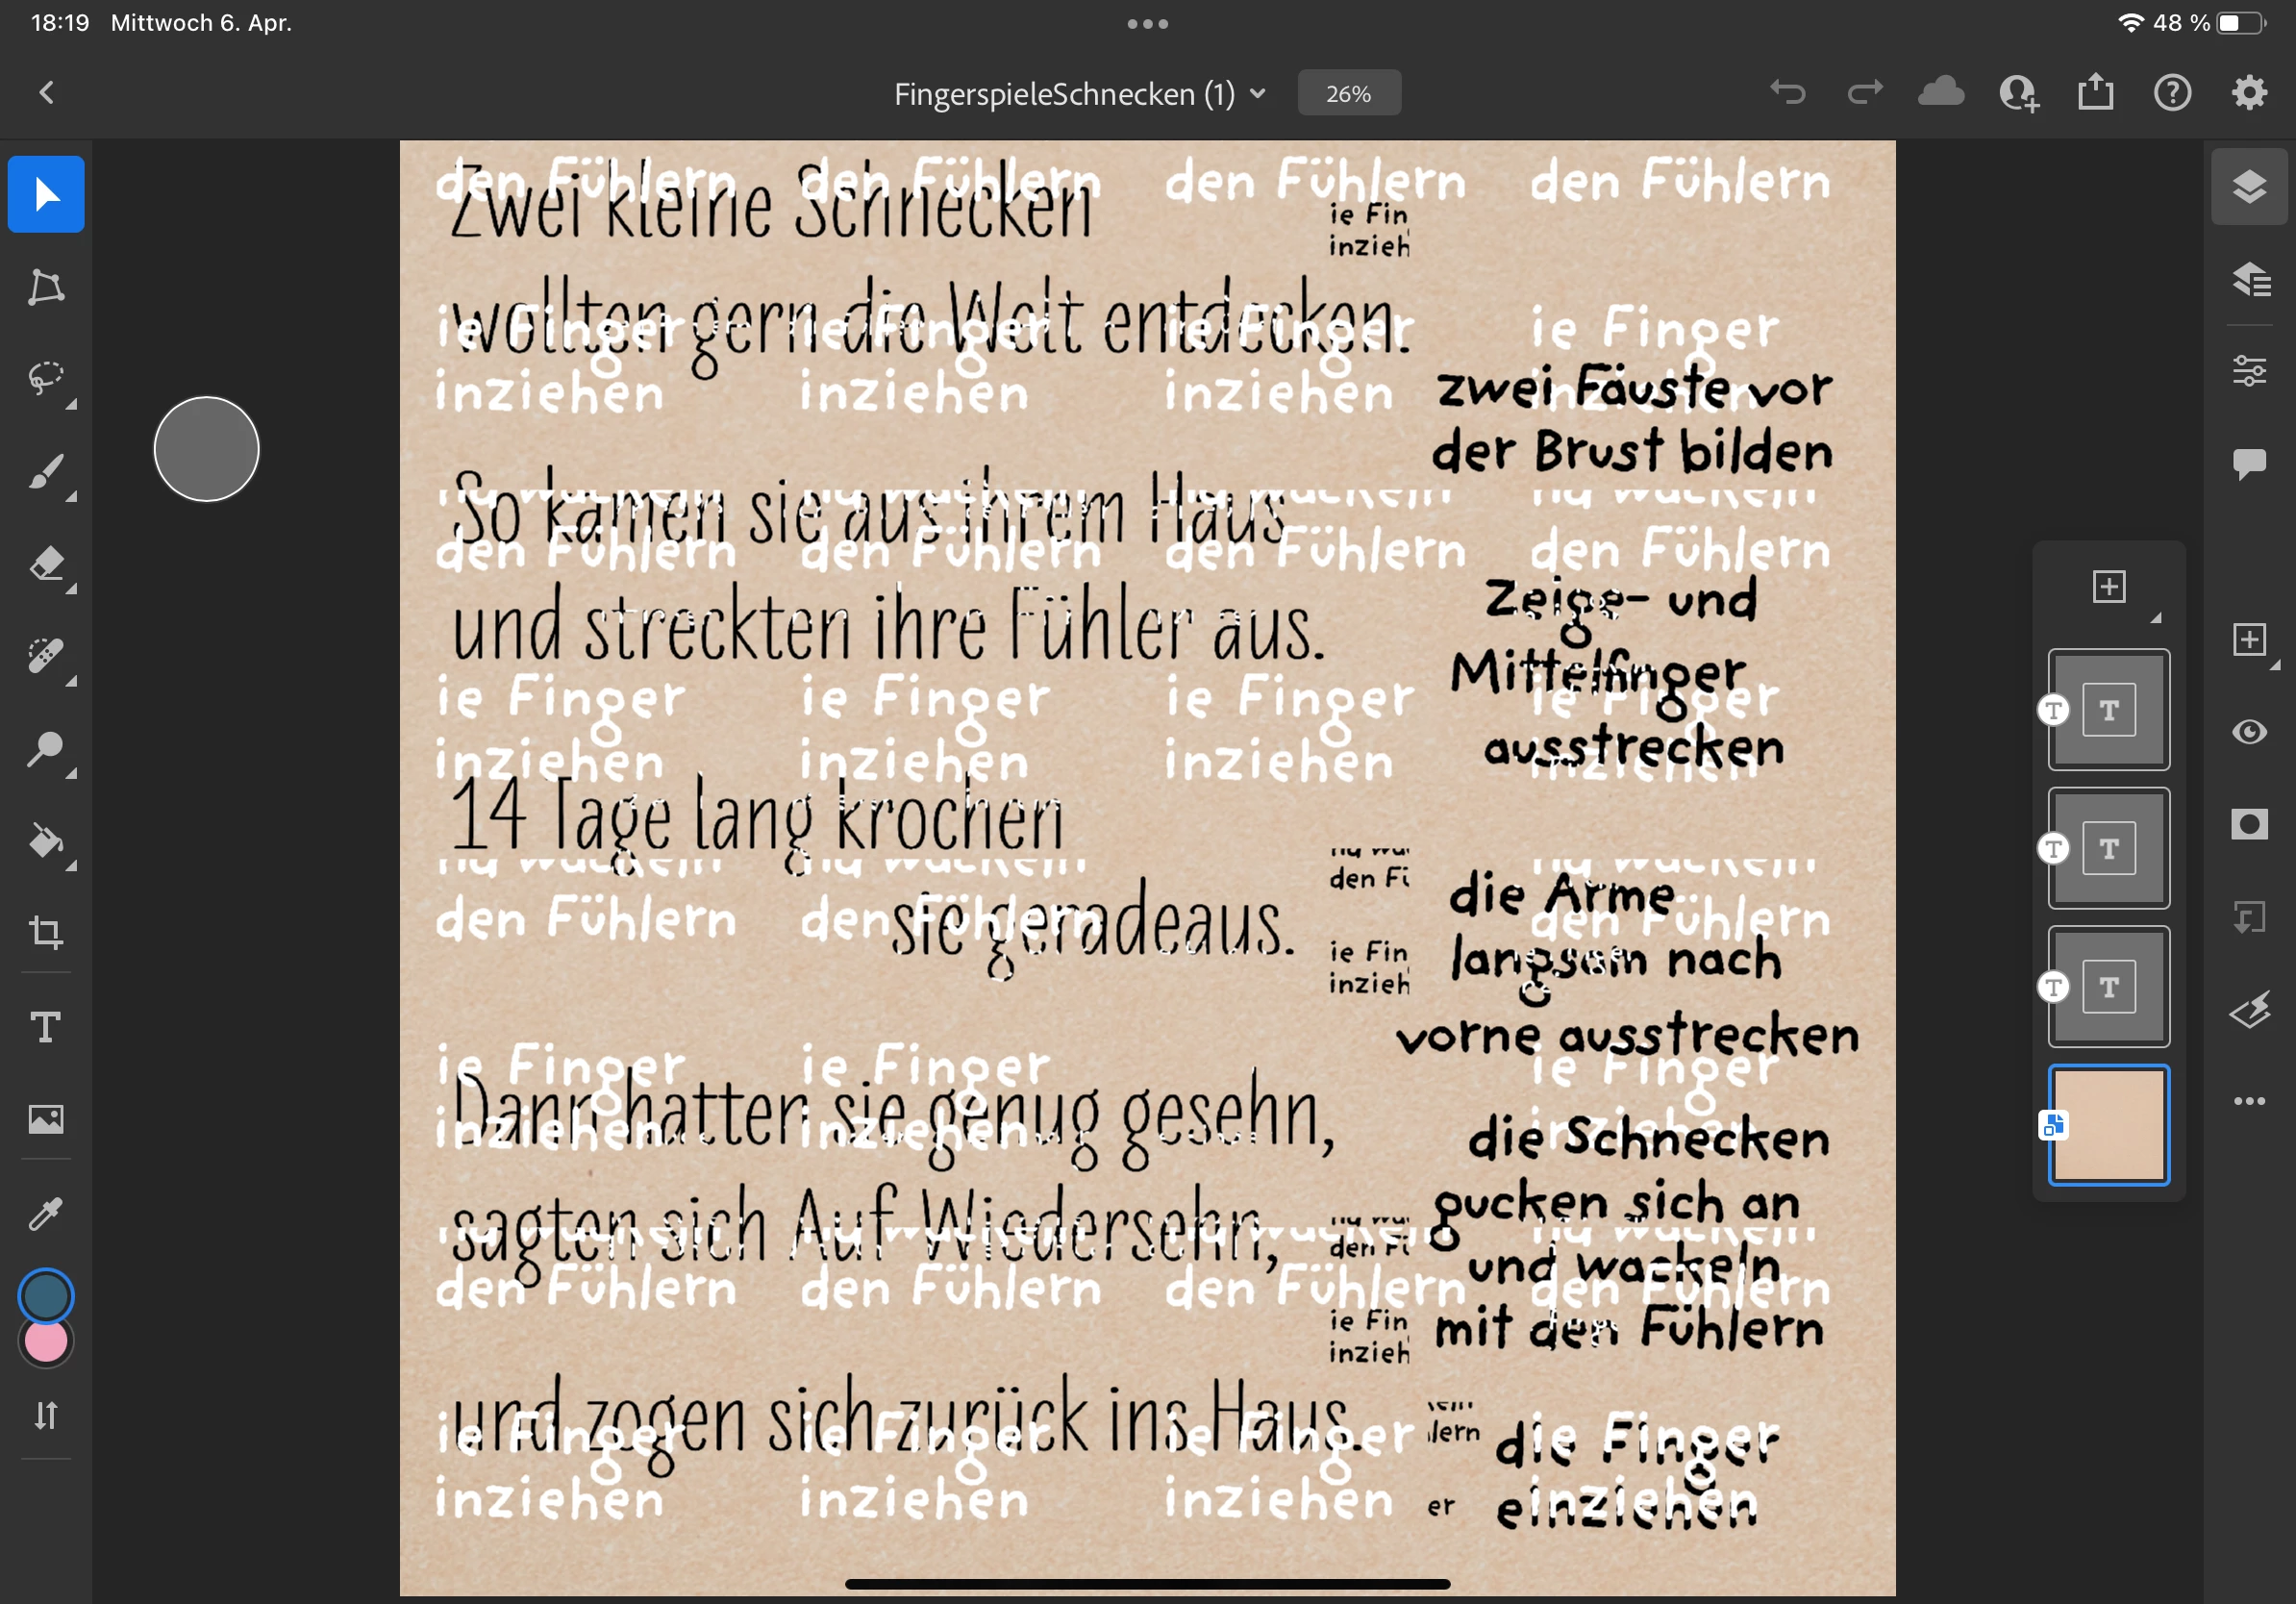 18:19 Mittwoch 6. Apr.
48 %
FingerspieleSchnecken (1)
26%
den Fühlern den Fühlern den Fühlern den Fühlern
Zwei kleine Schnecken
ie Fin
inzieh
wollten gern die Welt entdecken.
ie Finger ie Finger ie Finger ie Finger
inziehen inziehen inziehen inziehen
zwei Fäuste vor
der Brust bilden
So kamen sie aus ihrem Haus
den Fühlern den Fühlern den Fühlern den Fühlern
und streckten ihre Fühler aus.
Zeige- und
Mittelfinger
ausstrecken
ie Finger ie Finger ie Finger ie Finger
inziehen inziehen inziehen inziehen
14 Tage lang krochen
den Fühlern den Fühlern den Fühlern
sie geradeaus.
ie Fin
inzieh
die Arme
langsam nach
vorne ausstrecken
ie Finger ie Finger ie Finger
inziehen inziehen inziehen
Dann hatten sie genug gesehn,
sagten sich Auf Wiedersehn,
die Schnecken
gucken sich an
und wackeln
mit den Fühlern
den Fühlern den Fühlern den Fühlern den Fühlern
ie Fin
inzieh
und zogen sich zurück ins Haus.
ie Finger ie Finger ie Finger
inziehen inziehen inziehen
lern
er
die Finger
einziehen
T
T
T
T
T
T